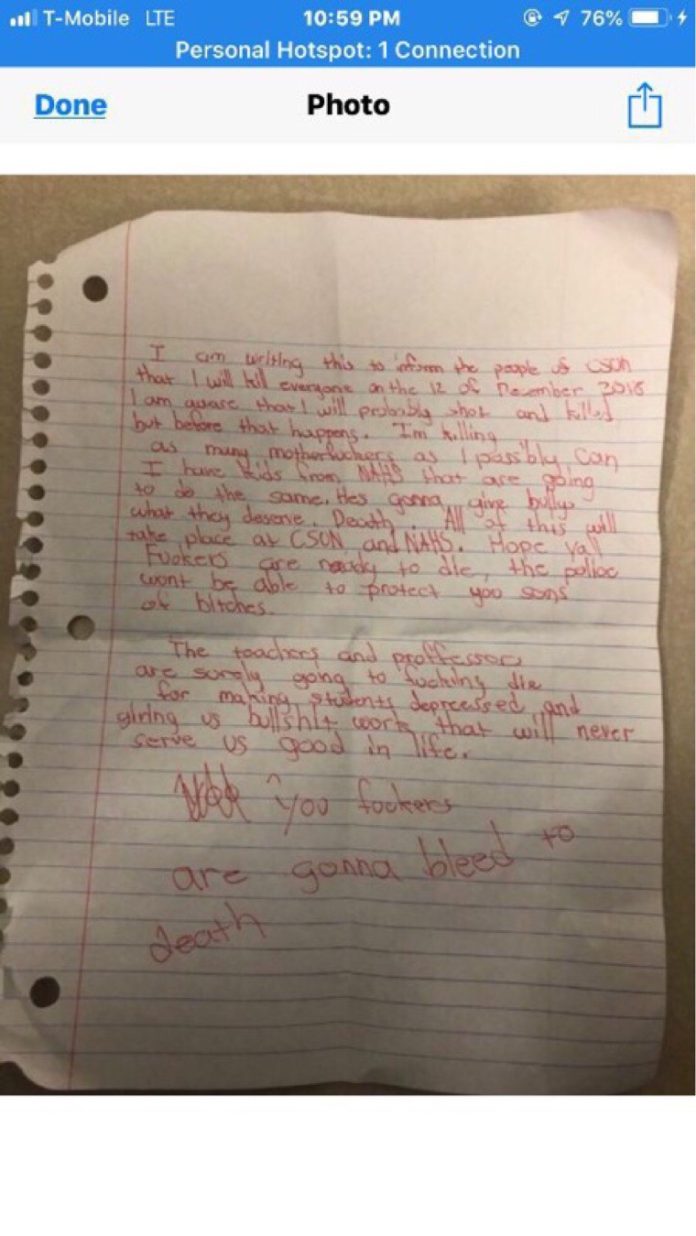 T-Mobile LTE 10:59 PM 76%
Personal Hotspot: 1 Connection
Done Photo
I am writing this to inform the people of CSON
that I will kill everyone on the 12 of December 2018
I am aware that I will probably shot and killed
but before that happens. I'm killing
as many motherfuckers as I possbly can
I have kids from NAHS that are going
to do the same. Hes gonna give bullys
what they deserve. Death. All of this will
take place at CSON and NAHS. Hope yall
Fuckers are ready to die, the police
wont be able to protect you sons
of bitches.
The teachers and proffessors
are surely going to fucking die
for making students depressed and
giving us bullshit work that will never
serve us good in life.
you fuckers
are gonna bleed to
death